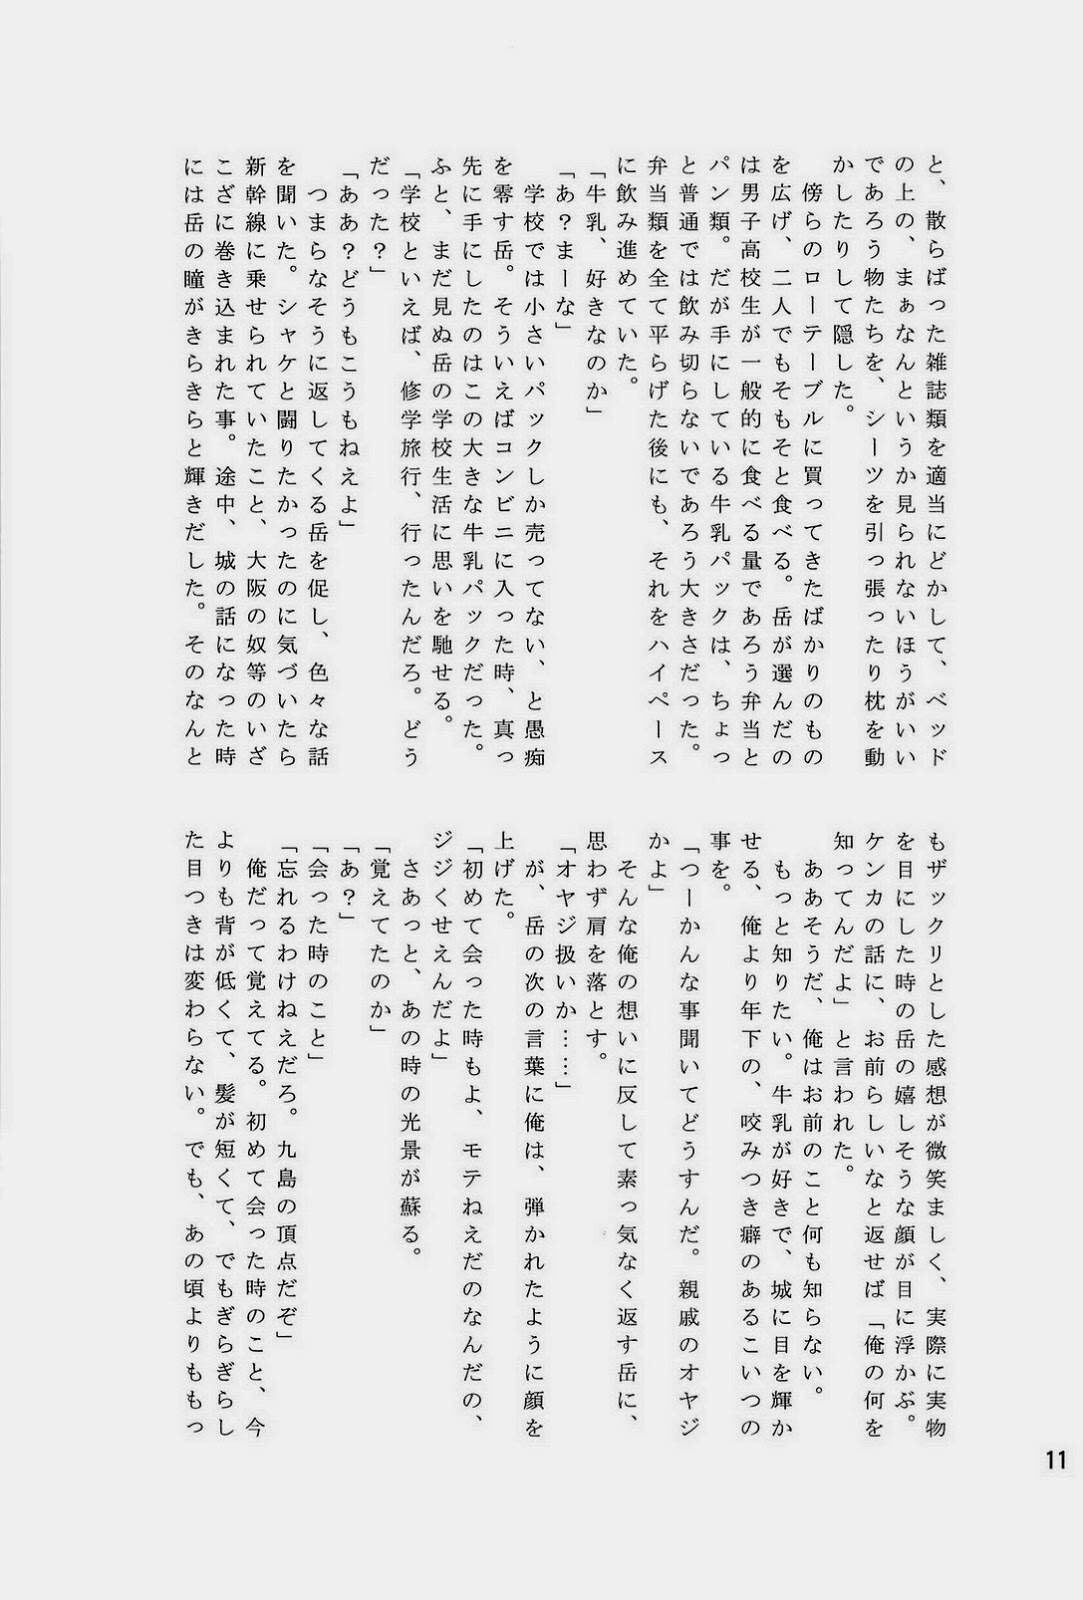 と、散らばった雑誌類を適当にどかして、ベッド
の上の、まぁなんというか見られないほうがいい
であろう物たちを、シーツを引っ張ったり枕を動
かしたりして隠した。
傍らのローテーブルに買ってきたばかりのもの
を広げ、二人でもそもそと食べる。岳が選んだの
は男子高校生が一般的に食べる量であろう弁当と
パン類。だが手にしている牛乳パックは、ちょっ
と普通では飲み切らないであろう大きさだった。
弁当類を全て平らげた後にも、それをハイペース
に飲み進めていた。
「牛乳、好きなのか」
「あ？まーな」
学校では小さいパックしか売ってない、と愚痴
を零す岳。そういえばコンビニに入った時、真っ
先に手にしたのはこの大きな牛乳パックだった。
ふと、まだ見ぬ岳の学校生活に思いを馳せる。
「学校といえば、修学旅行、行ったんだろ。どう
だった？」
「ああ？どうもこうもねえよ」
つまらなそうに返してくる岳を促し、色々な話
を聞いた。シャケと闘りたかったのに気づいたら
新幹線に乗せられていたこと、大阪の奴等のいざ
こざに巻き込まれた事。途中、城の話になった時
には岳の瞳がきらきらと輝きだした。そのなんと
もザックリとした感想が微笑ましく、実際に実物
を目にした時の岳の嬉しそうな顔が目に浮かぶ。
ケンカの話に、お前らしいなと返せば「俺の何を
知ってんだよ」と言われた。
ああそうだ、俺はお前のこと何も知らない。
もっと知りたい。牛乳が好きで、城に目を輝か
せる、俺より年下の、咬みつき癖のあるこいつの
事を。
「つーかんな事聞いてどうすんだ。親戚のオヤジ
かよ」
そんな俺の想いに反して素っ気なく返す岳に、
思わず肩を落とす。
「オヤジ扱いか……」
が、岳の次の言葉に俺は、弾かれたように顔を
上げた。
「初めて会った時もよ、モテねえだのなんだの、
ジジくせえんだよ」
さあっと、あの時の光景が蘇る。
「覚えてたのか」
「あ？」
「会った時のこと」
「忘れるわけねえだろ。九島の頂点だぞ」
俺だって覚えてる。初めて会った時のこと、今
よりも背が低くて、髪が短くて、でもぎらぎらし
た目つきは変わらない。でも、あの頃よりももっ
11